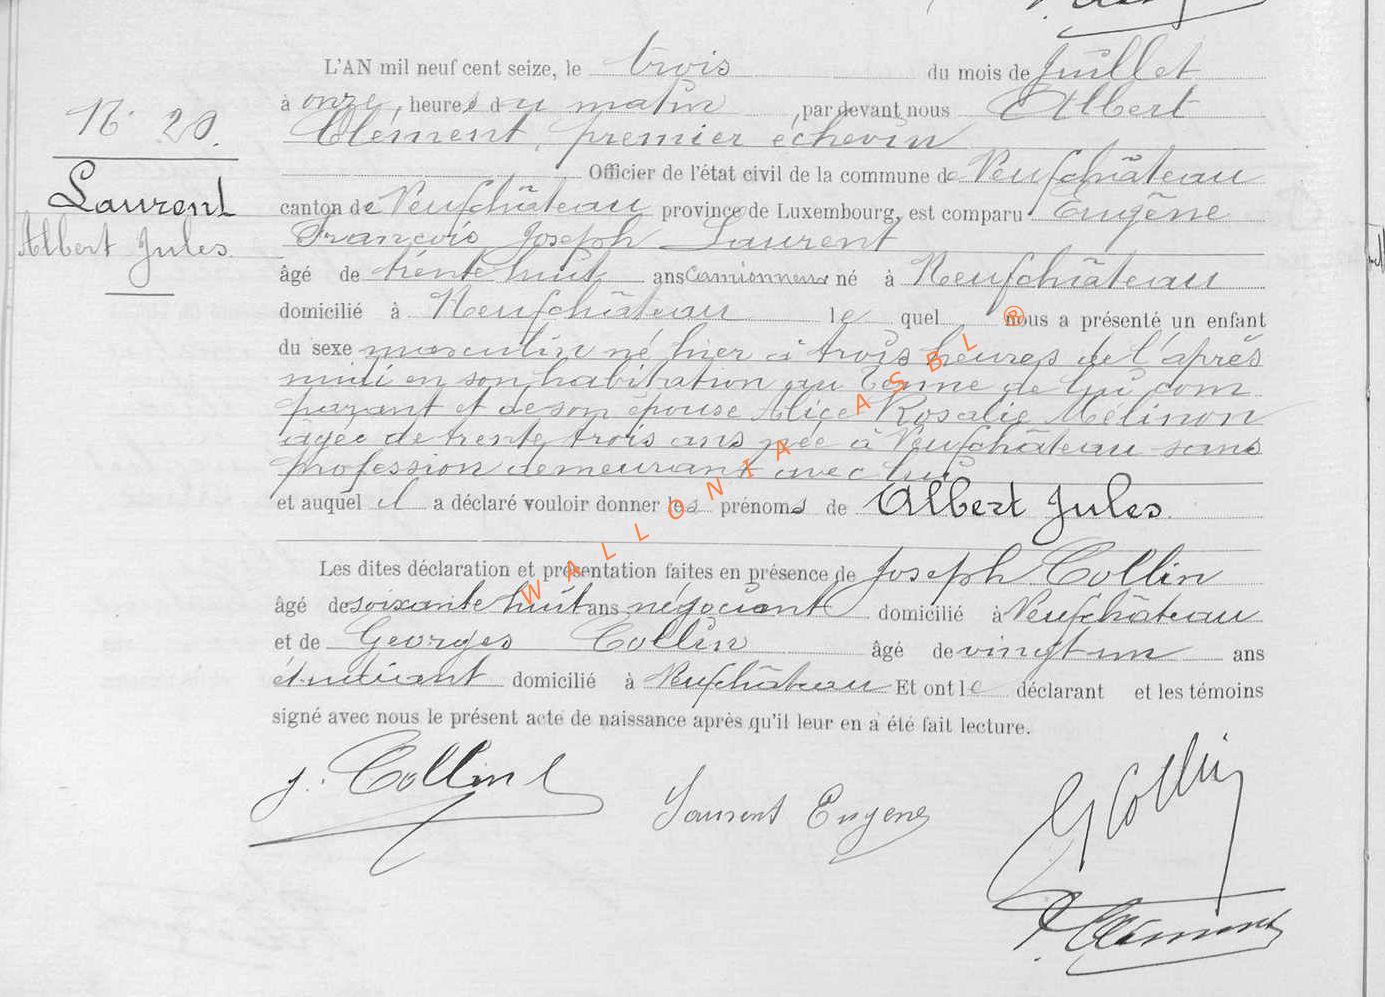 L'AN mil neuf cent seize, le trois du mois de Juillet
à onze, heures du matin, par devant nous Albert
Clément, premier échevin
Officier de l'état civil de la commune de Neufchâteau
canton de Neufchâteau province de Luxembourg, est comparu Eugène
François Joseph Laurent
âgé de trente huit ans camionneur né à Neufchâteau
domicilié à Neufchâteau le quel nous a présenté un enfant
du sexe masculin né hier à trois heures de l'après
midi en son habitation au Terme de lui com
parant et de son épouse Alice Rosalie Mélinon
âgée de trente trois ans née à Neufchâteau sans
profession demeurant avec lui
et auquel il a déclaré vouloir donner les prénoms de Albert Jules
Les dites déclaration et présentation faites en présence de Joseph Collin
âgé de soixante huit ans négociant domicilié à Neufchâteau
et de Georges Collin âgé de vingt un ans
étudiant domicilié à Neufchâteau Et ont le déclarant et les témoins
signé avec nous le présent acte de naissance après qu'il leur en a été fait lecture.
J. Collin
Laurent Eugène
G Collin
A Clément
N. 20.
Laurent
Albert Jules
WALLONIA ASBL ®